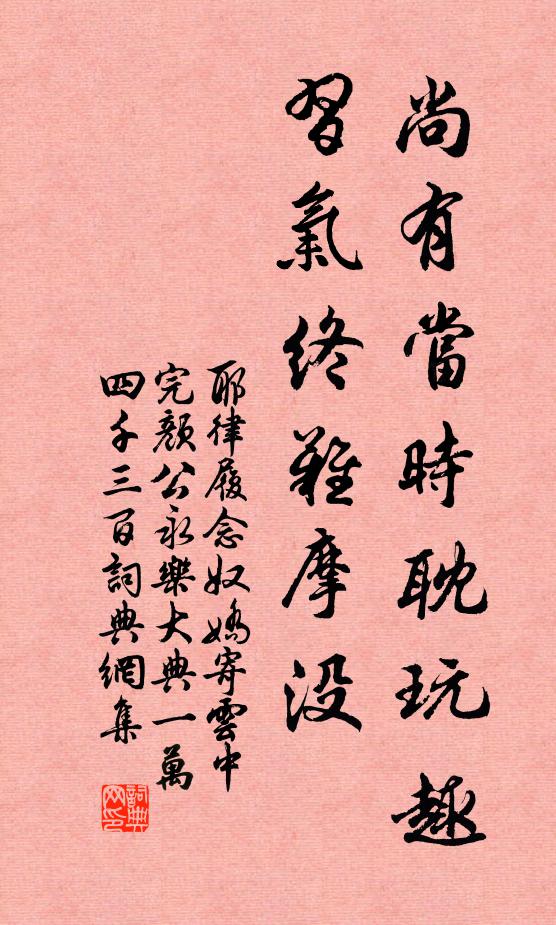 尚有當時耽玩趣
習氣終難摩没
耶律履念奴嬌寄雲中
完顏公永樂大典一萬
四千三百詞典網集
詞典
网印